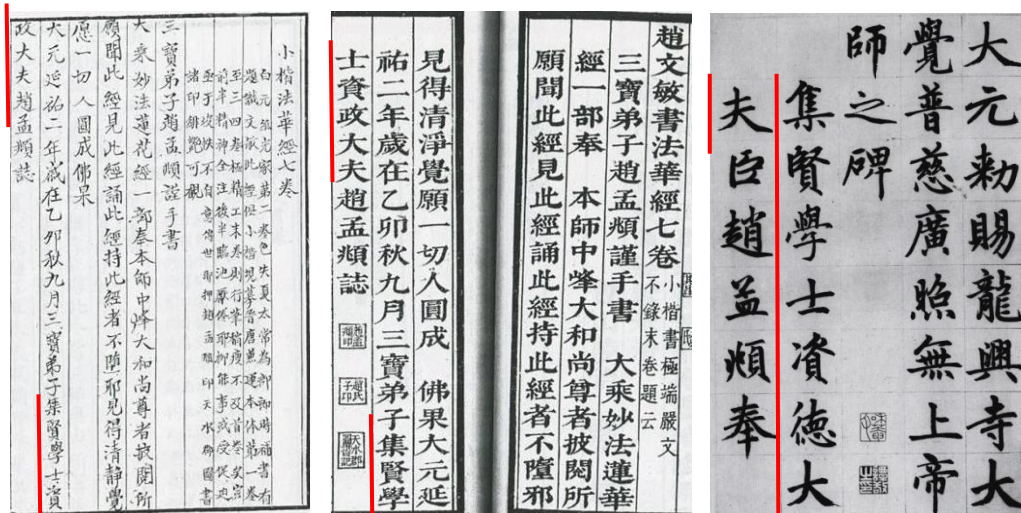 小楷法華經七卷
至三四卷極精工末卷則行筆稍瘦不及首卷矣豈
前半精神全注後半臨池厭倦耶抑能事或受促迫
三寶弟子趙孟頫謹手書
大乘妙法蓮花經一部奉本師中峰大和尚尊者披閱所
願聞此經見此經誦此經持此經者不墮耶見得清靜覺
愿一切人圓成佛果
大元延祐二年歲在乙夘秋九月三寶弟子集賢學士資
政大夫趙孟頫誌
趙文敏書法華經七卷 小楷書極端嚴文
不錄末卷題云
三寶弟子趙孟頫謹手書 大乘妙法蓮華
經一部奉 本師中峰大和尚尊者披閱所
願聞此經見此經誦此經持此經者不墮邪
見得清淨覺願一切人圓成 佛果大元延
祐二年歲在乙卯秋九月三寶弟子集賢學
士資政大夫趙孟頫誌
大元勑賜龍興寺大
覺普慈廣照無上帝
師之碑
集賢學士資德大
夫臣趙孟頫奉